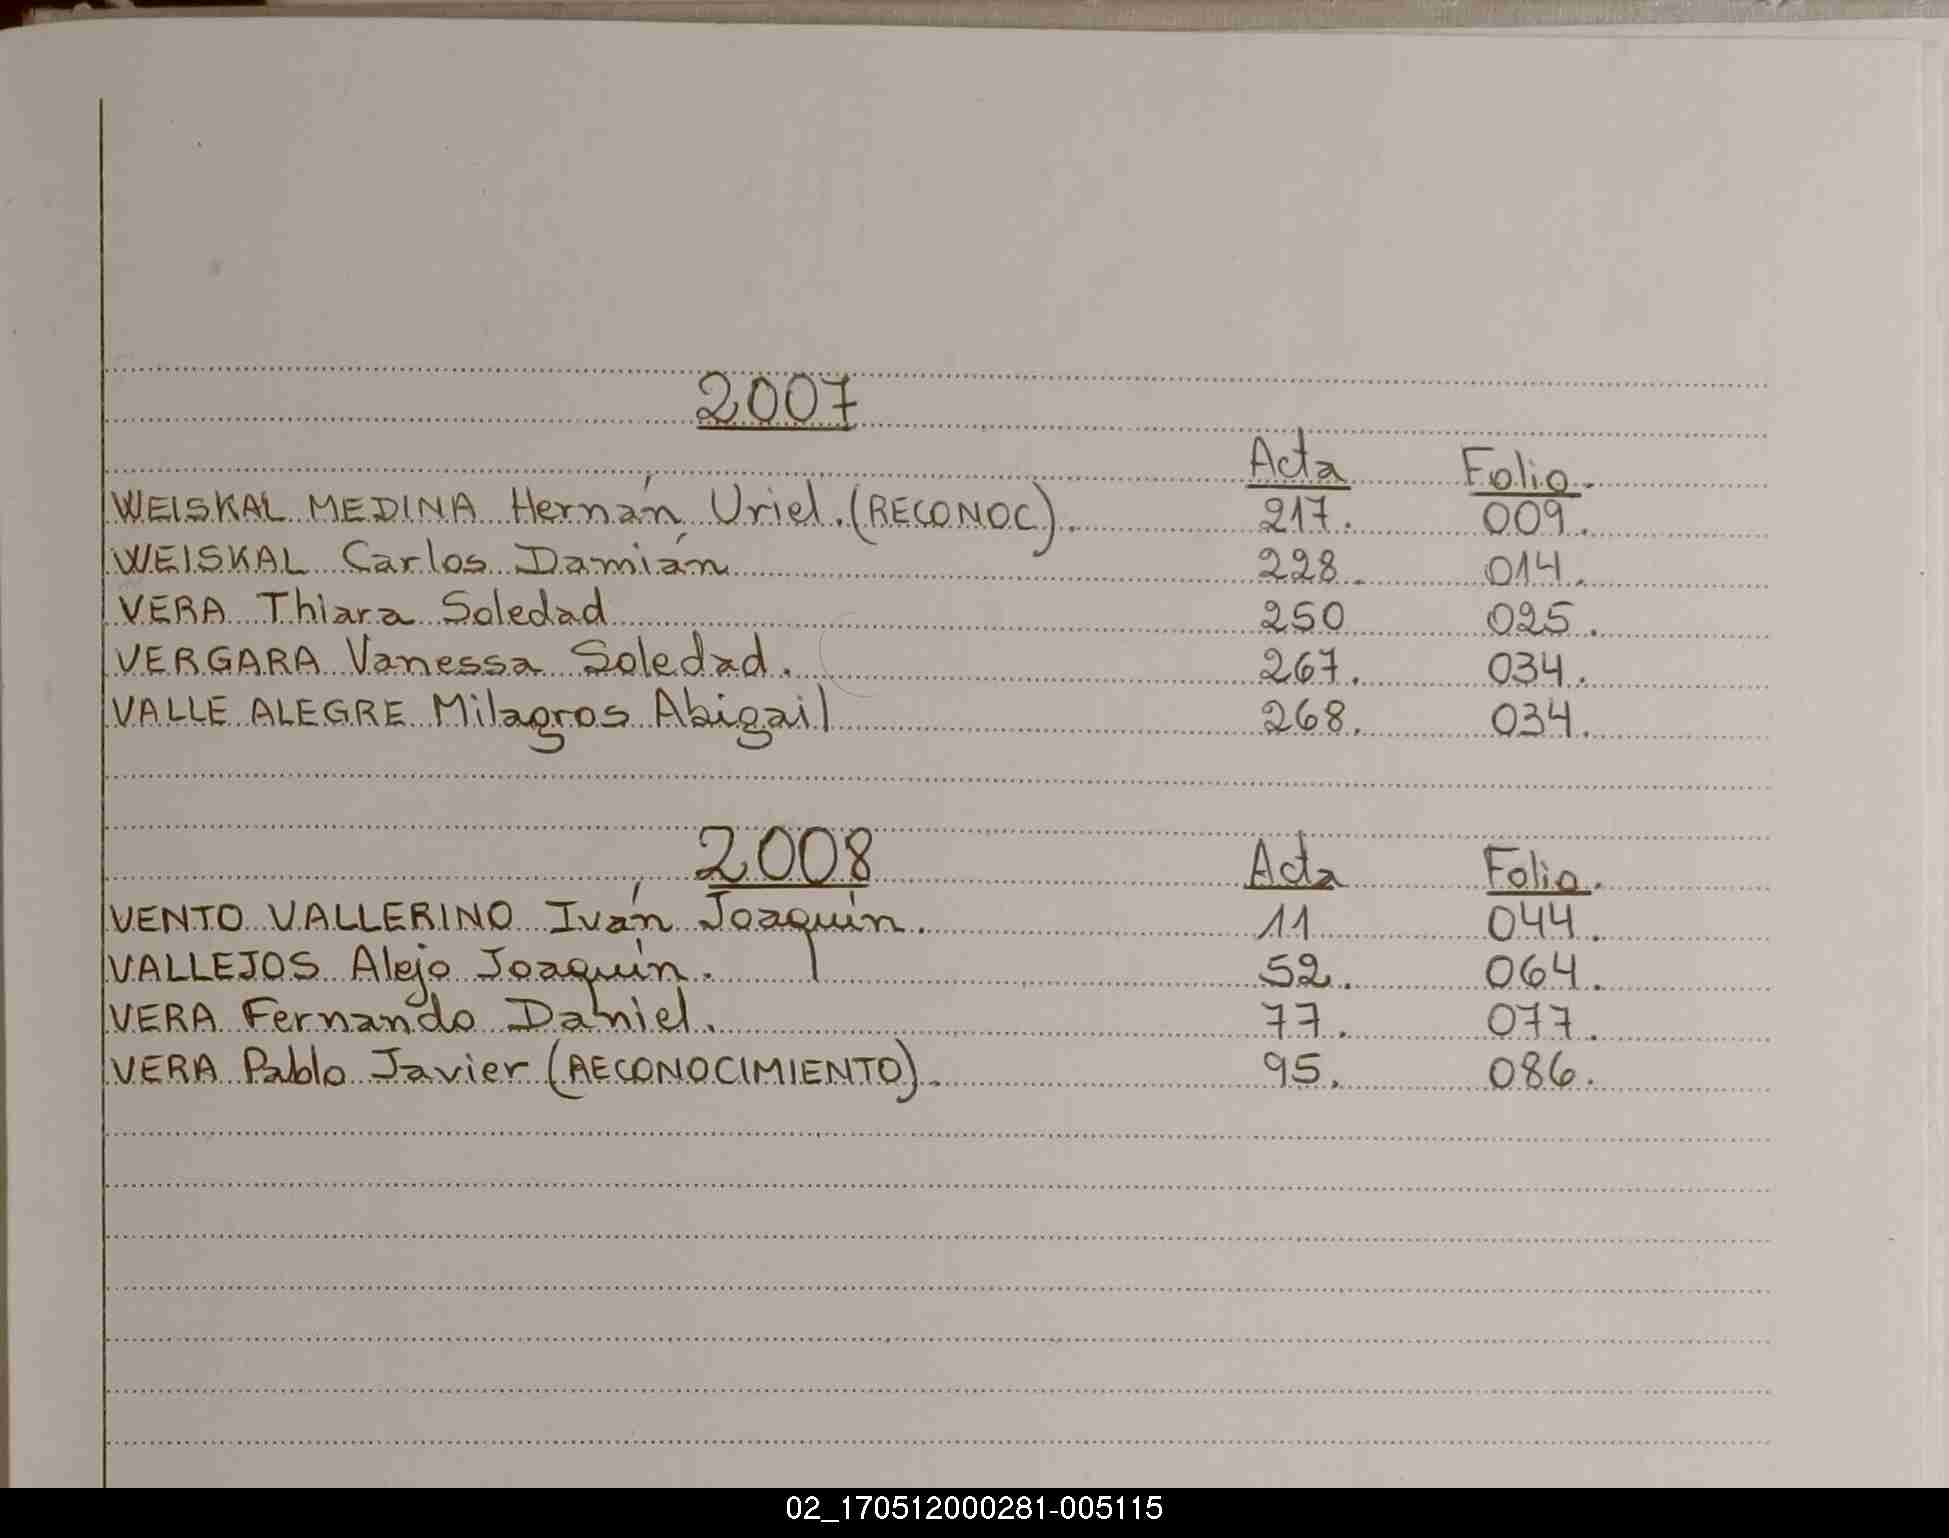 2007
Acta Folio.
WEISKAL MEDINA Hernán Uriel. (RECONOC). 217. 009.
WEISKAL Carlos Damián 228. 014.
VERA Thiara Soledad 250 025.
VERGARA Vanessa Soledad. 267. 034.
VALLE ALEGRE Milagros Abigail 268. 034.
2008 Acta Folio.
VENTO VALLERINO Iván Joaquín. 11 044.
VALLEJOS Alejo Joaquín. 52. 064.
VERA Fernando Daniel. 77. 077.
VERA Pablo Javier (RECONOCIMIENTO). 95. 086.
02_170512000281-005115